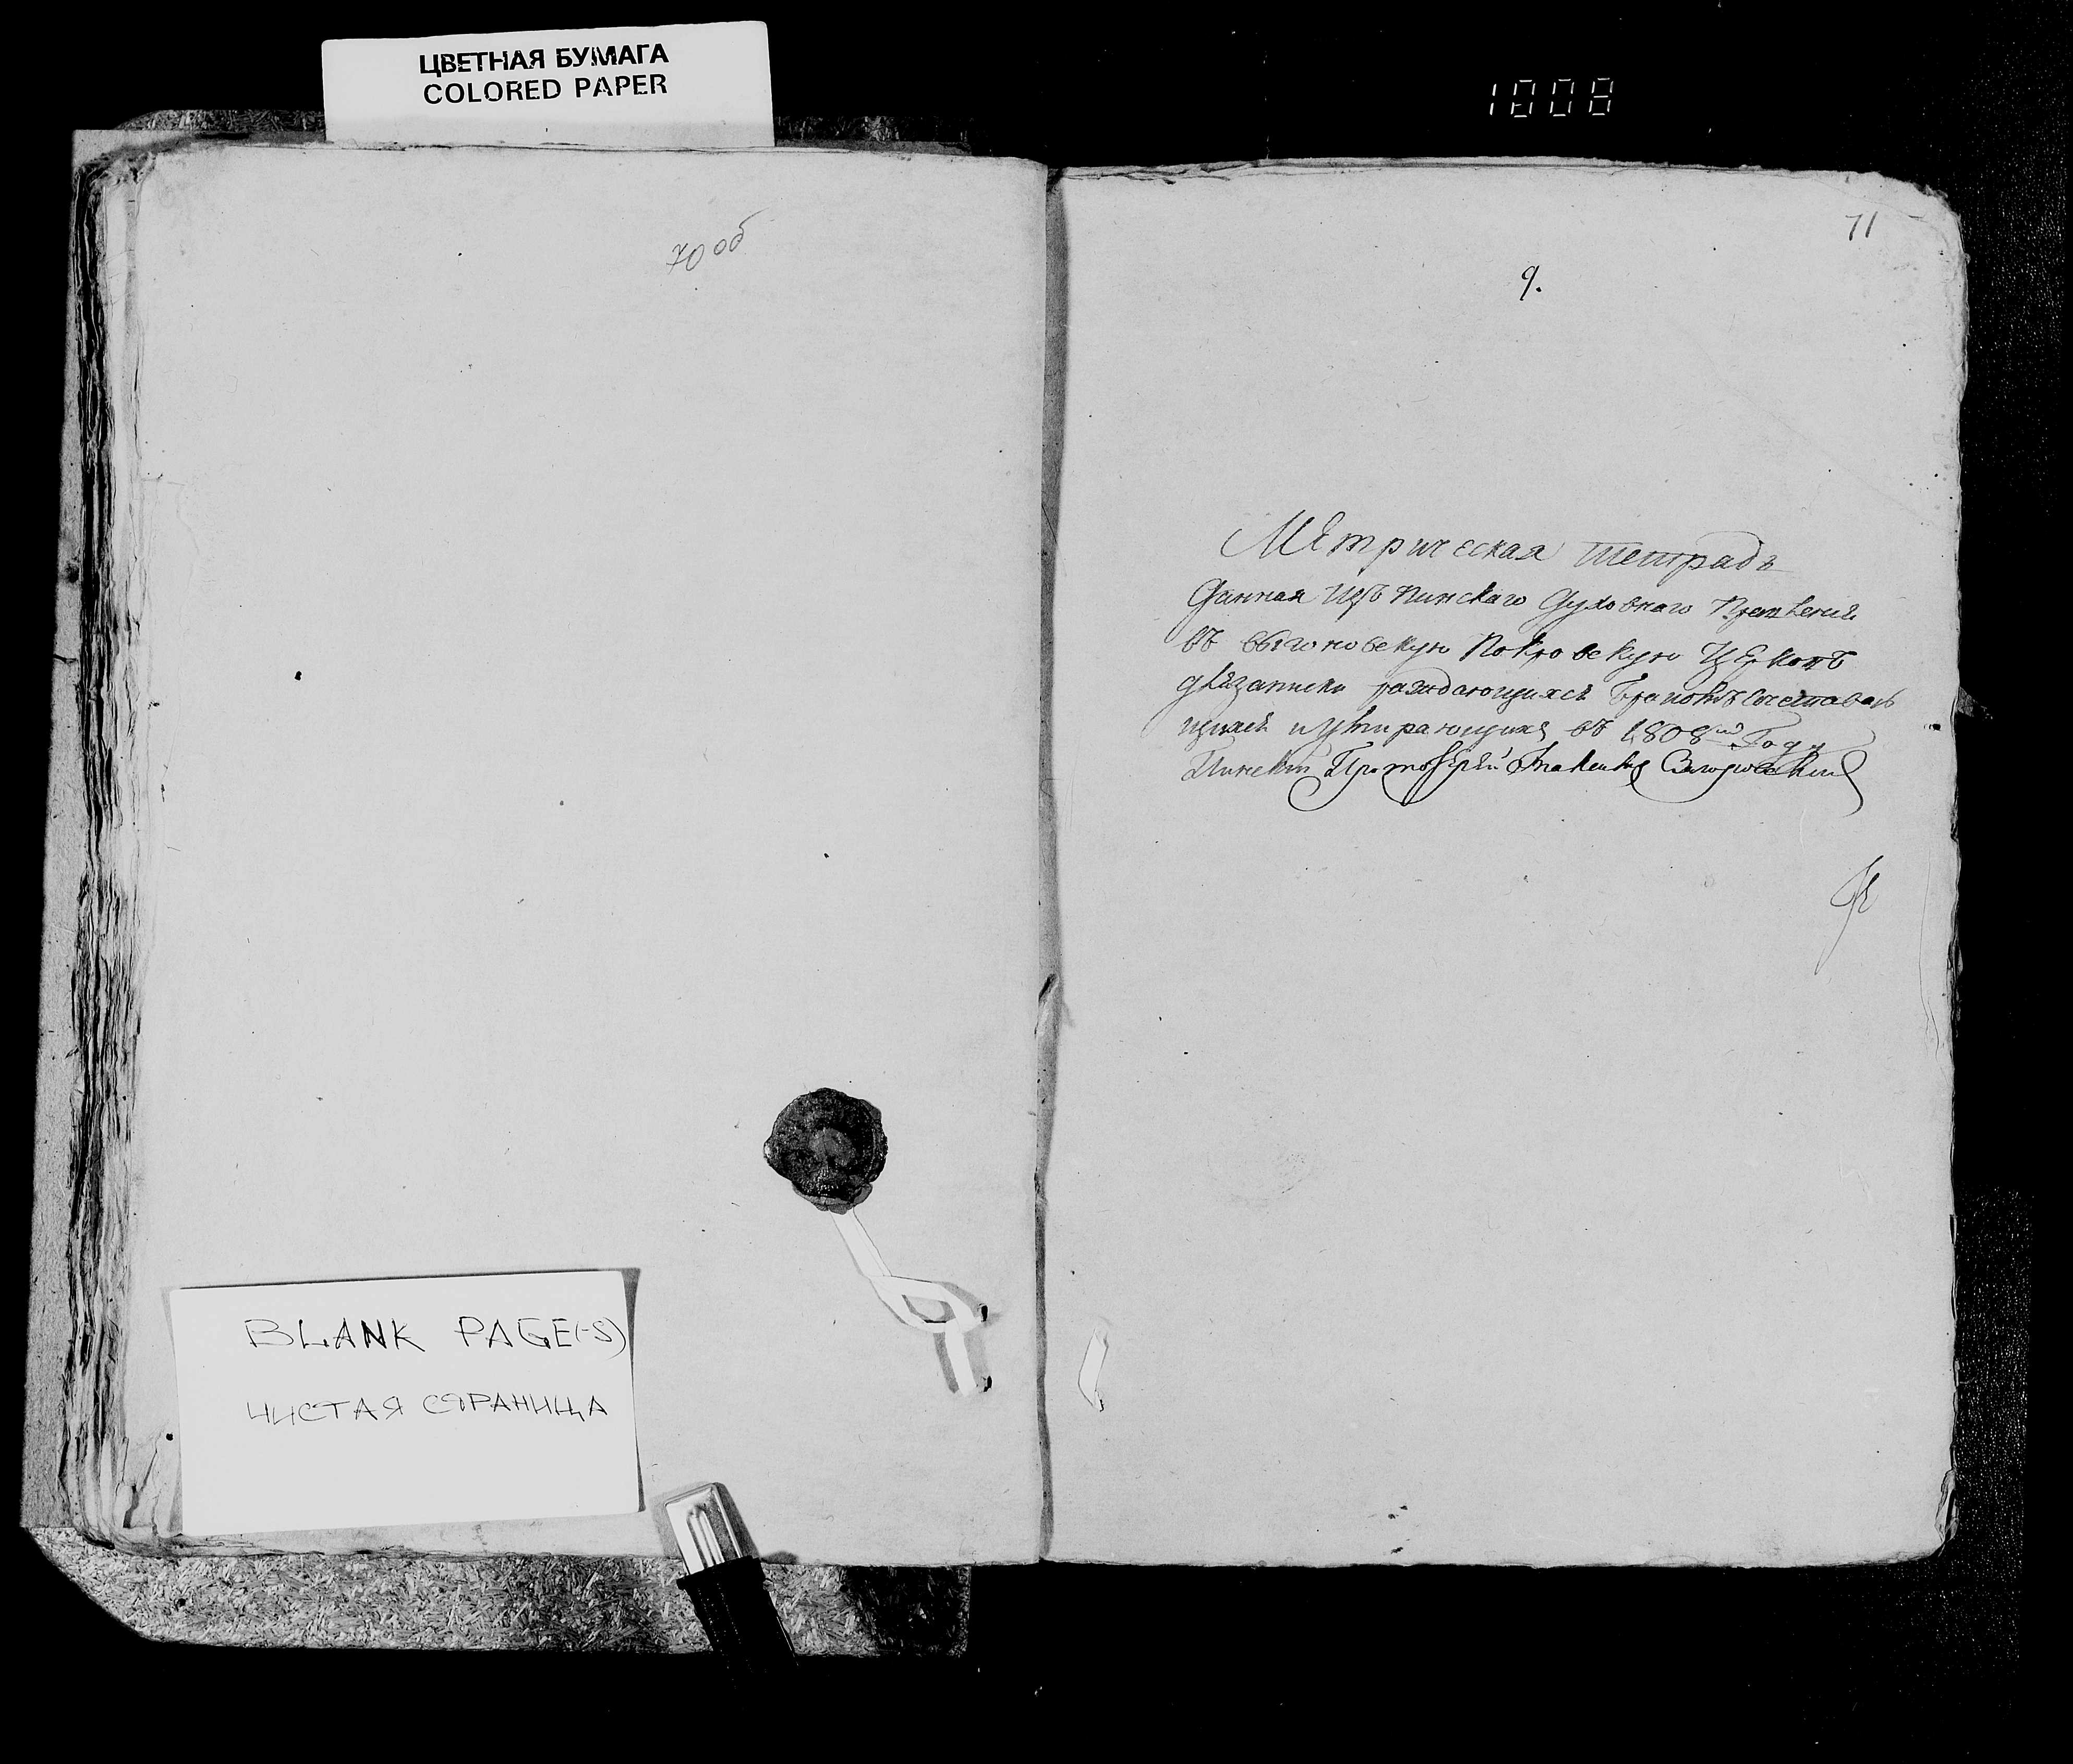 ЦВЕТНАЯ БУМАГА
COLORED PAPER
1008
70 об
71
9.
Метрическая тетрадь
Данная изъ Пинскаго Духовнаго Правления
въ выгоновскую Покровскую Церковь
для записки раждающихся браковъ
и умирающихъ въ 1808мъ Году
Пинский Протоиерей
BLANK PAGE(-S)
ЧИСТАЯ СТРАНИЦА